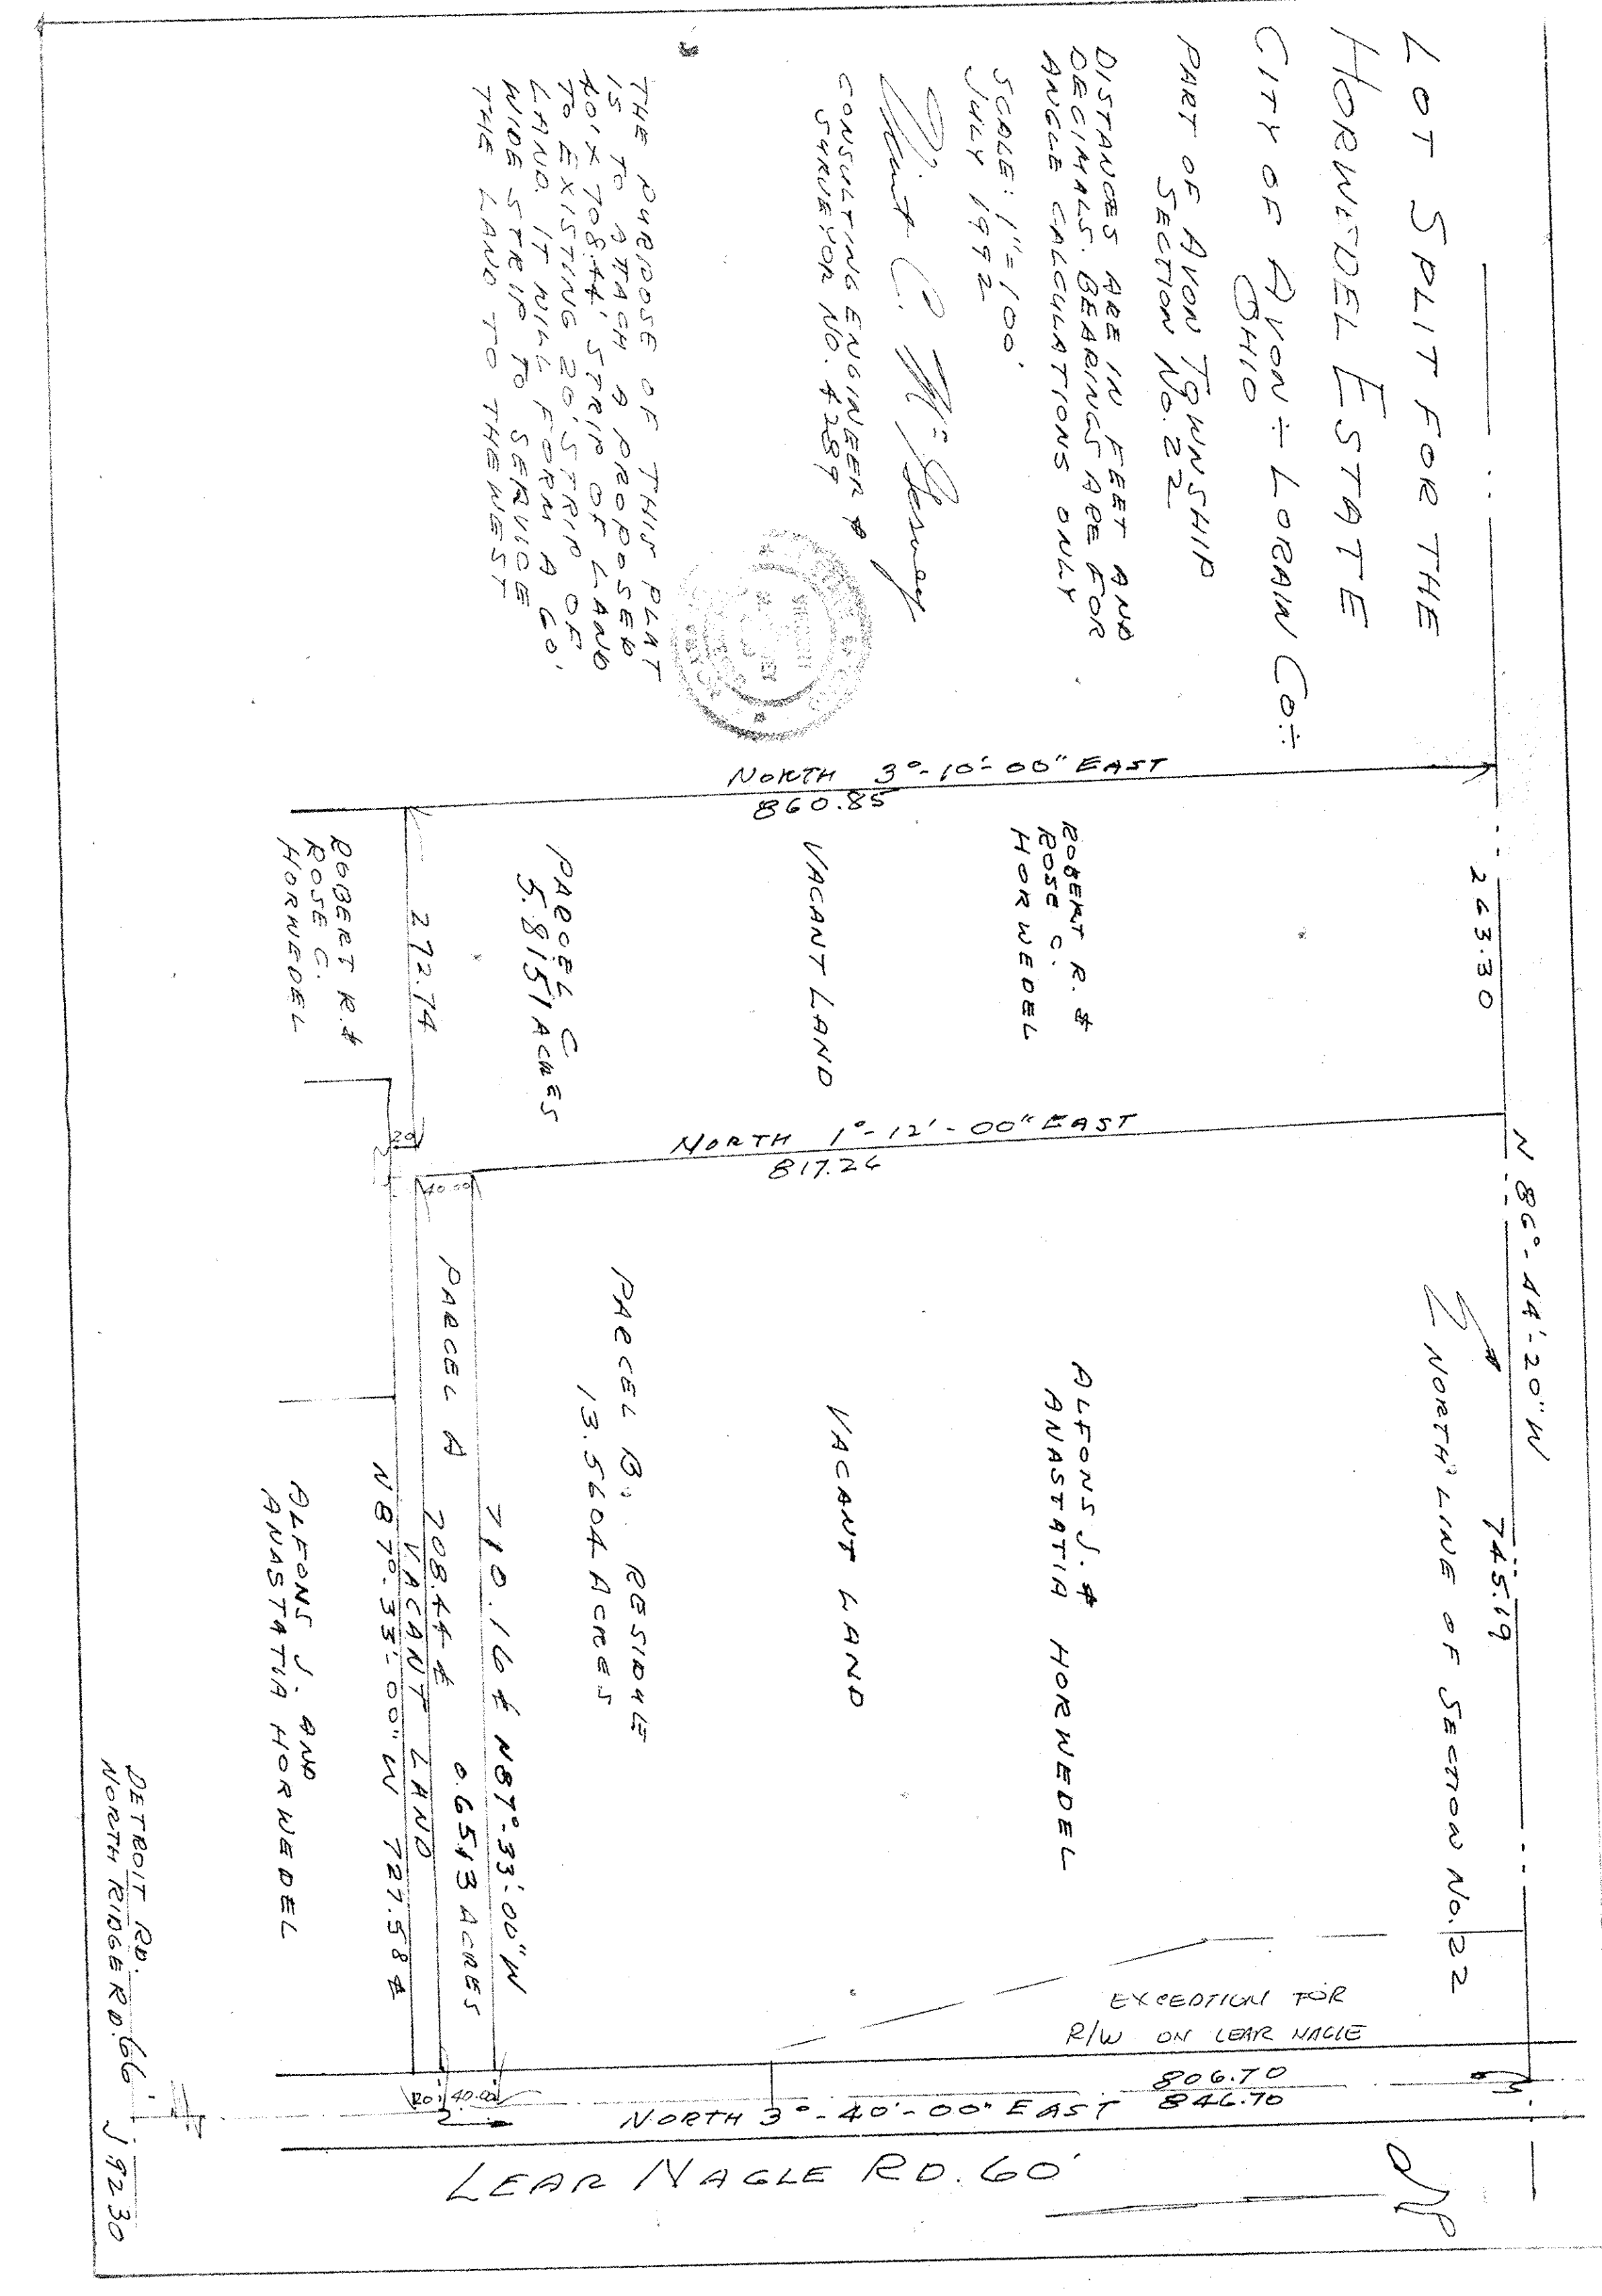 LOT SPLIT FOR THE
HORWEDEL ESTATE
CITY OF AVON ÷ LORAIN CO÷
OHIO
PART OF AVON TOWNSHIP
SECTION NO. 22
DISTANCES ARE IN FEET AND
DECIMALS. BEARINGS ARE FOR
ANGLE CALCULATIONS ONLY
SCALE: 1"=100'
JULY 1992
CONSULTING ENGINEER &
SURVEYOR NO. 4289
THE PURPOSE OF THIS PLAT
IS TO ATTACH A PROPOSED
40' X 708.44' STRIP OF LAND
TO EXISTING 20' STRIP OF
LAND. IT WILL FORM A 60'
WIDE STRIP TO SERVICE
THE LAND TO THE WEST
NORTH 3°-10'-00" EAST
860.85
263.30
ROBERT R. &
ROSE C.
HORWEDEL
VACANT LAND
PARCEL C
5.8151 ACRES
272.74
ROBERT R. &
ROSE C.
HORWEDEL
20
NORTH 1°-12'-00" EAST
817.26
40.00
N 86°-44'-20" W
745.19
NORTH LINE OF SECTION NO. 22
ALFONS J. &
ANASTATIA HORWEDEL
VACANT LAND
PARCEL B: RESIDUE
13.5604 ACRES
710.16 ¢ N87°-33'-00" W
PARCEL A 708.44 ¢ 0.6513 ACRES
VACANT LAND
N 87°-33'-00" W 727.58 ¢
ALFONS J. AND
ANASTATIA HORWEDEL
EXCEPTION FOR
R/W ON LEAR NAGLE
806.70
846.70
20' 40.00
NORTH 3°-40'-00" EAST
LEAR NAGLE RD. 60'
DETROIT RD.
NORTH RIDGE RD. 66' J9230